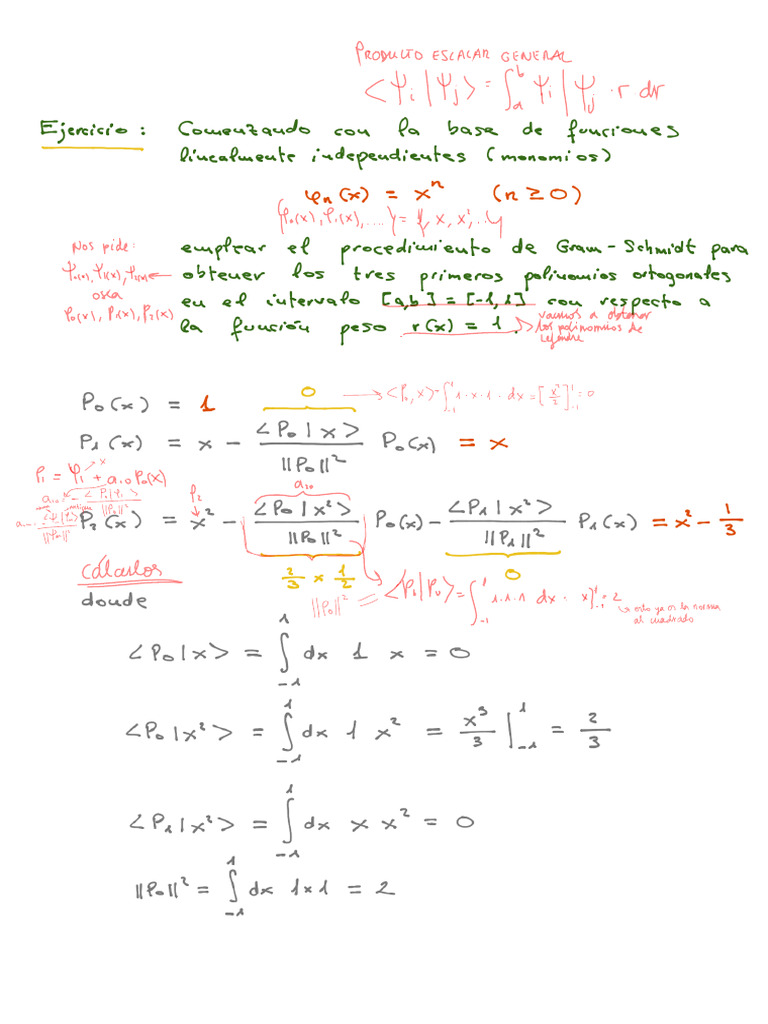 PRODUCTO ESCALAR GENERAL
<Ψi|Ψj> = ∫_a^b Ψi|Ψj · r dr
Ejercicio: Comenzando con la base de funciones
linealmente independientes (monomios)
φn(x) = x^n (n ≥ 0)
{φ0(x), φ1(x), ....} = {1, x, x², ..}
Nos pide:
Ψ0(x), Ψ1(x), Ψ2(x) ←
osea
P0(x), P1(x), P2(x)
emplear el procedimiento de Gram-Schmidt para
obtener los tres primeros polinomios ortogonales
en el intervalo [a,b] = [-1,1] con respecto a
la función peso r(x) = 1.
vamos a obtener
los polinomios de
P0(x) = 1
0
→ <P0,x> = ∫_{-1}^1 1·x·1·dx = [x²/2]_{-1}^1 = 0
P1(x) = x - <P0|x>/||P0||² P0(x) = x
P1 = φ1 + a10 P0(x)
x
a10 = - <P0|φ1>/||P0||²
a20
P2
P2(x) = x² - <P0|x²>/||P0||² P0(x) - <P1|x²>/||P1||² P1(x) = x² - 1/3
2/3 x 1/2
0
cálculos
donde
||P0||² = <P0|P0> = ∫_{-1}^1 1·1·1 dx · x]_{-1}^1 = 2
→ esto ya es la norma
al cuadrado
<P0|x> = ∫_{-1}^1 dx 1 x = 0
<P0|x²> = ∫_{-1}^1 dx 1 x² = x³/3 |_{-1}^1 = 2/3
<P1|x²> = ∫_{-1}^1 dx x x² = 0
||P0||² = ∫_{-1}^1 dx 1x1 = 2